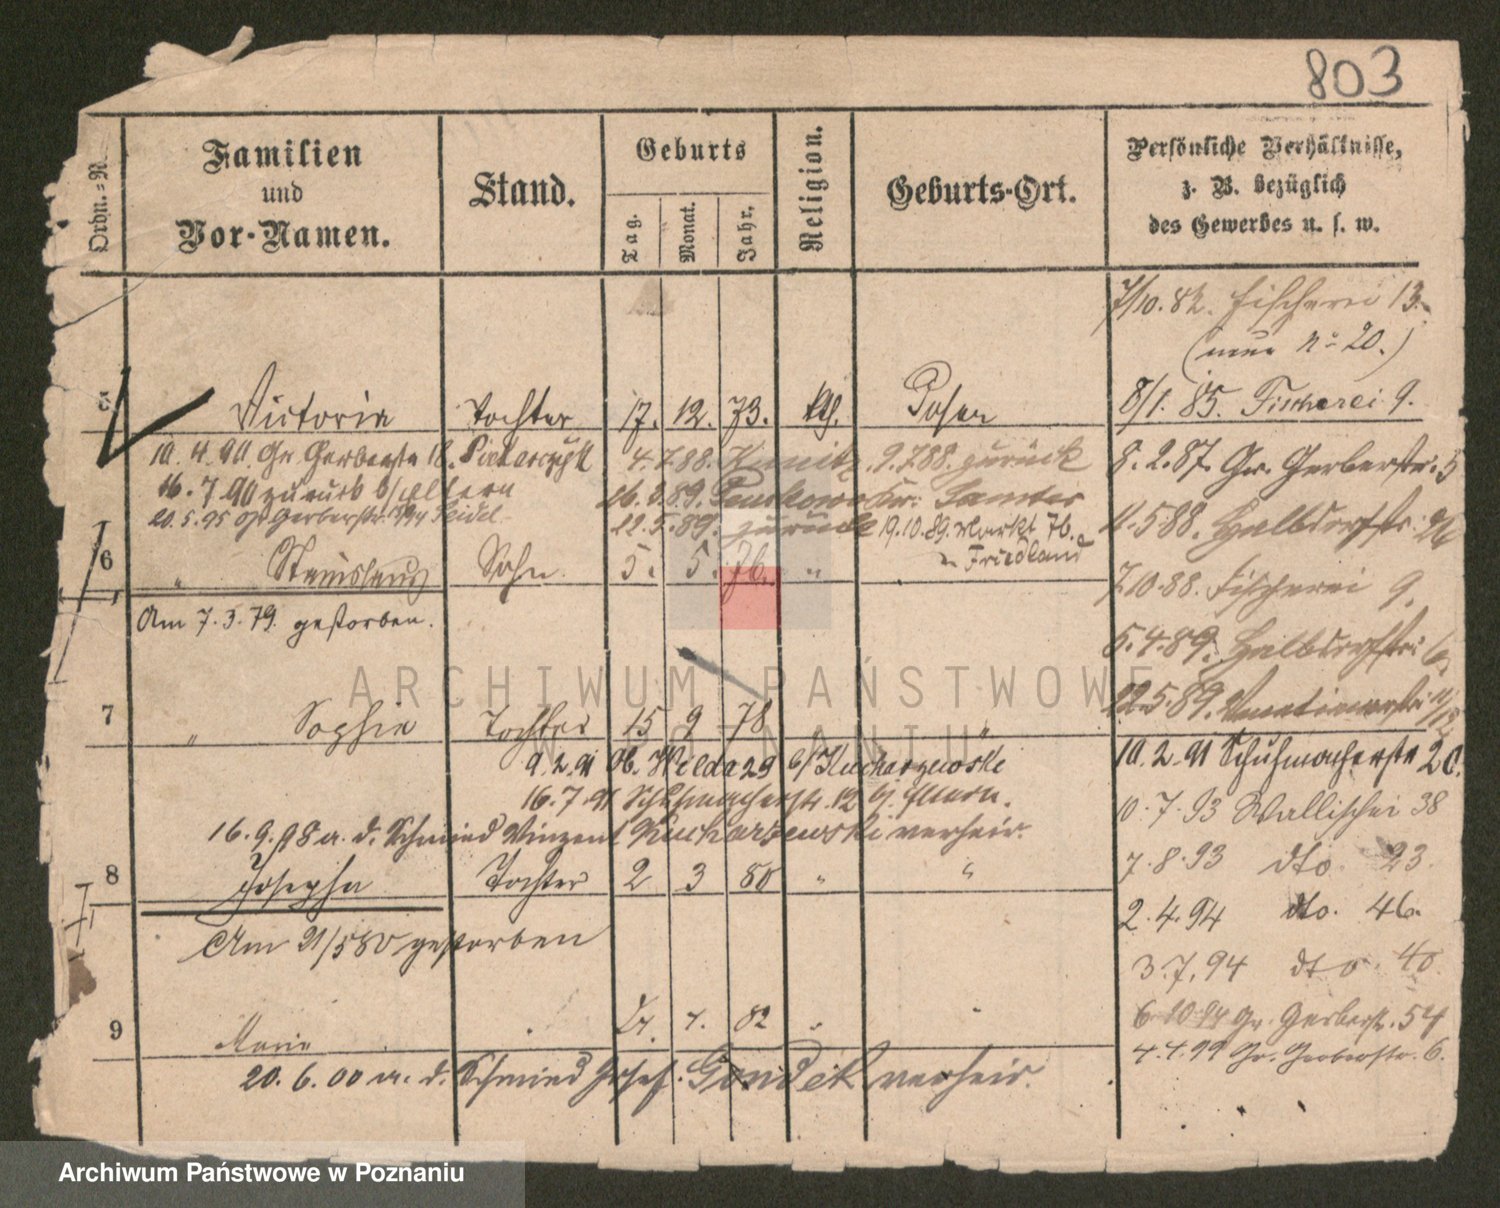 803
Ordn.=N.
Familien
und
Vor-Namen.
Stand.
Geburts
Tag.
Monat.
Jahr.
Religion.
Geburts-Ort.
Persönliche Verhältnisse,
z. B. bezüglich
des Gewerbes u. s. w.
7/10.82. Fischerei 13.
(neue No 20.)
8/1. 85. Fischerei 9.
5 Victoria Tochter 17. 12. 73. kth. Posen
10.4.90. Gr. Gerberstr 18. Pietarczyk 4.7.88. 9.7.88. zurück
8.2.87. Gr. Gerberstr. 5
16.7.90 zurück b/Eltern 26.3.89. Kr. Samter
20.5.95 Gr. Gerberstr. Seidel 22.5.89. zurück 19.10.89. Markt 76.
11.5.88. Halbdorfstr. 26
Friedland
6 " Stanislaus Sohn 5. 5. 76. "
7.10.88. Fischerei 9.
Am 7.3.79. gestorben.
5.4.89. Halbdorfstr. 6
12.5.89.
7 " Sophie Tochter 15 9 78 "
9.2.91 Ob. Wilda 29 b/Kucharzewske
10.2.91 Schuhmacherstr 20.
16.7.91 Schuhmacherstr. 12 bj. Eltern.
10.7.93 Wallischei 38
16.9.98 m. d. Schmied Vinzent Kucharzewski verheir.
7.8.93 dto. 23.
8 Josepha Tochter 2 3 80 " "
2.4.94 dto. 46.
Am 21/5 80 gestorben
3.7.94 dto. 40.
9 Marie 82 "
6.10.94 Gr. Gerberstr. 54
4.4.99 Gr. Gerberstr. 6.
20.6.00 m. d. Schmied Josef. Gondek verheir.
ARCHIWUM PAŃSTWOWE
W POZNANIU
Archiwum Państwowe w Poznaniu